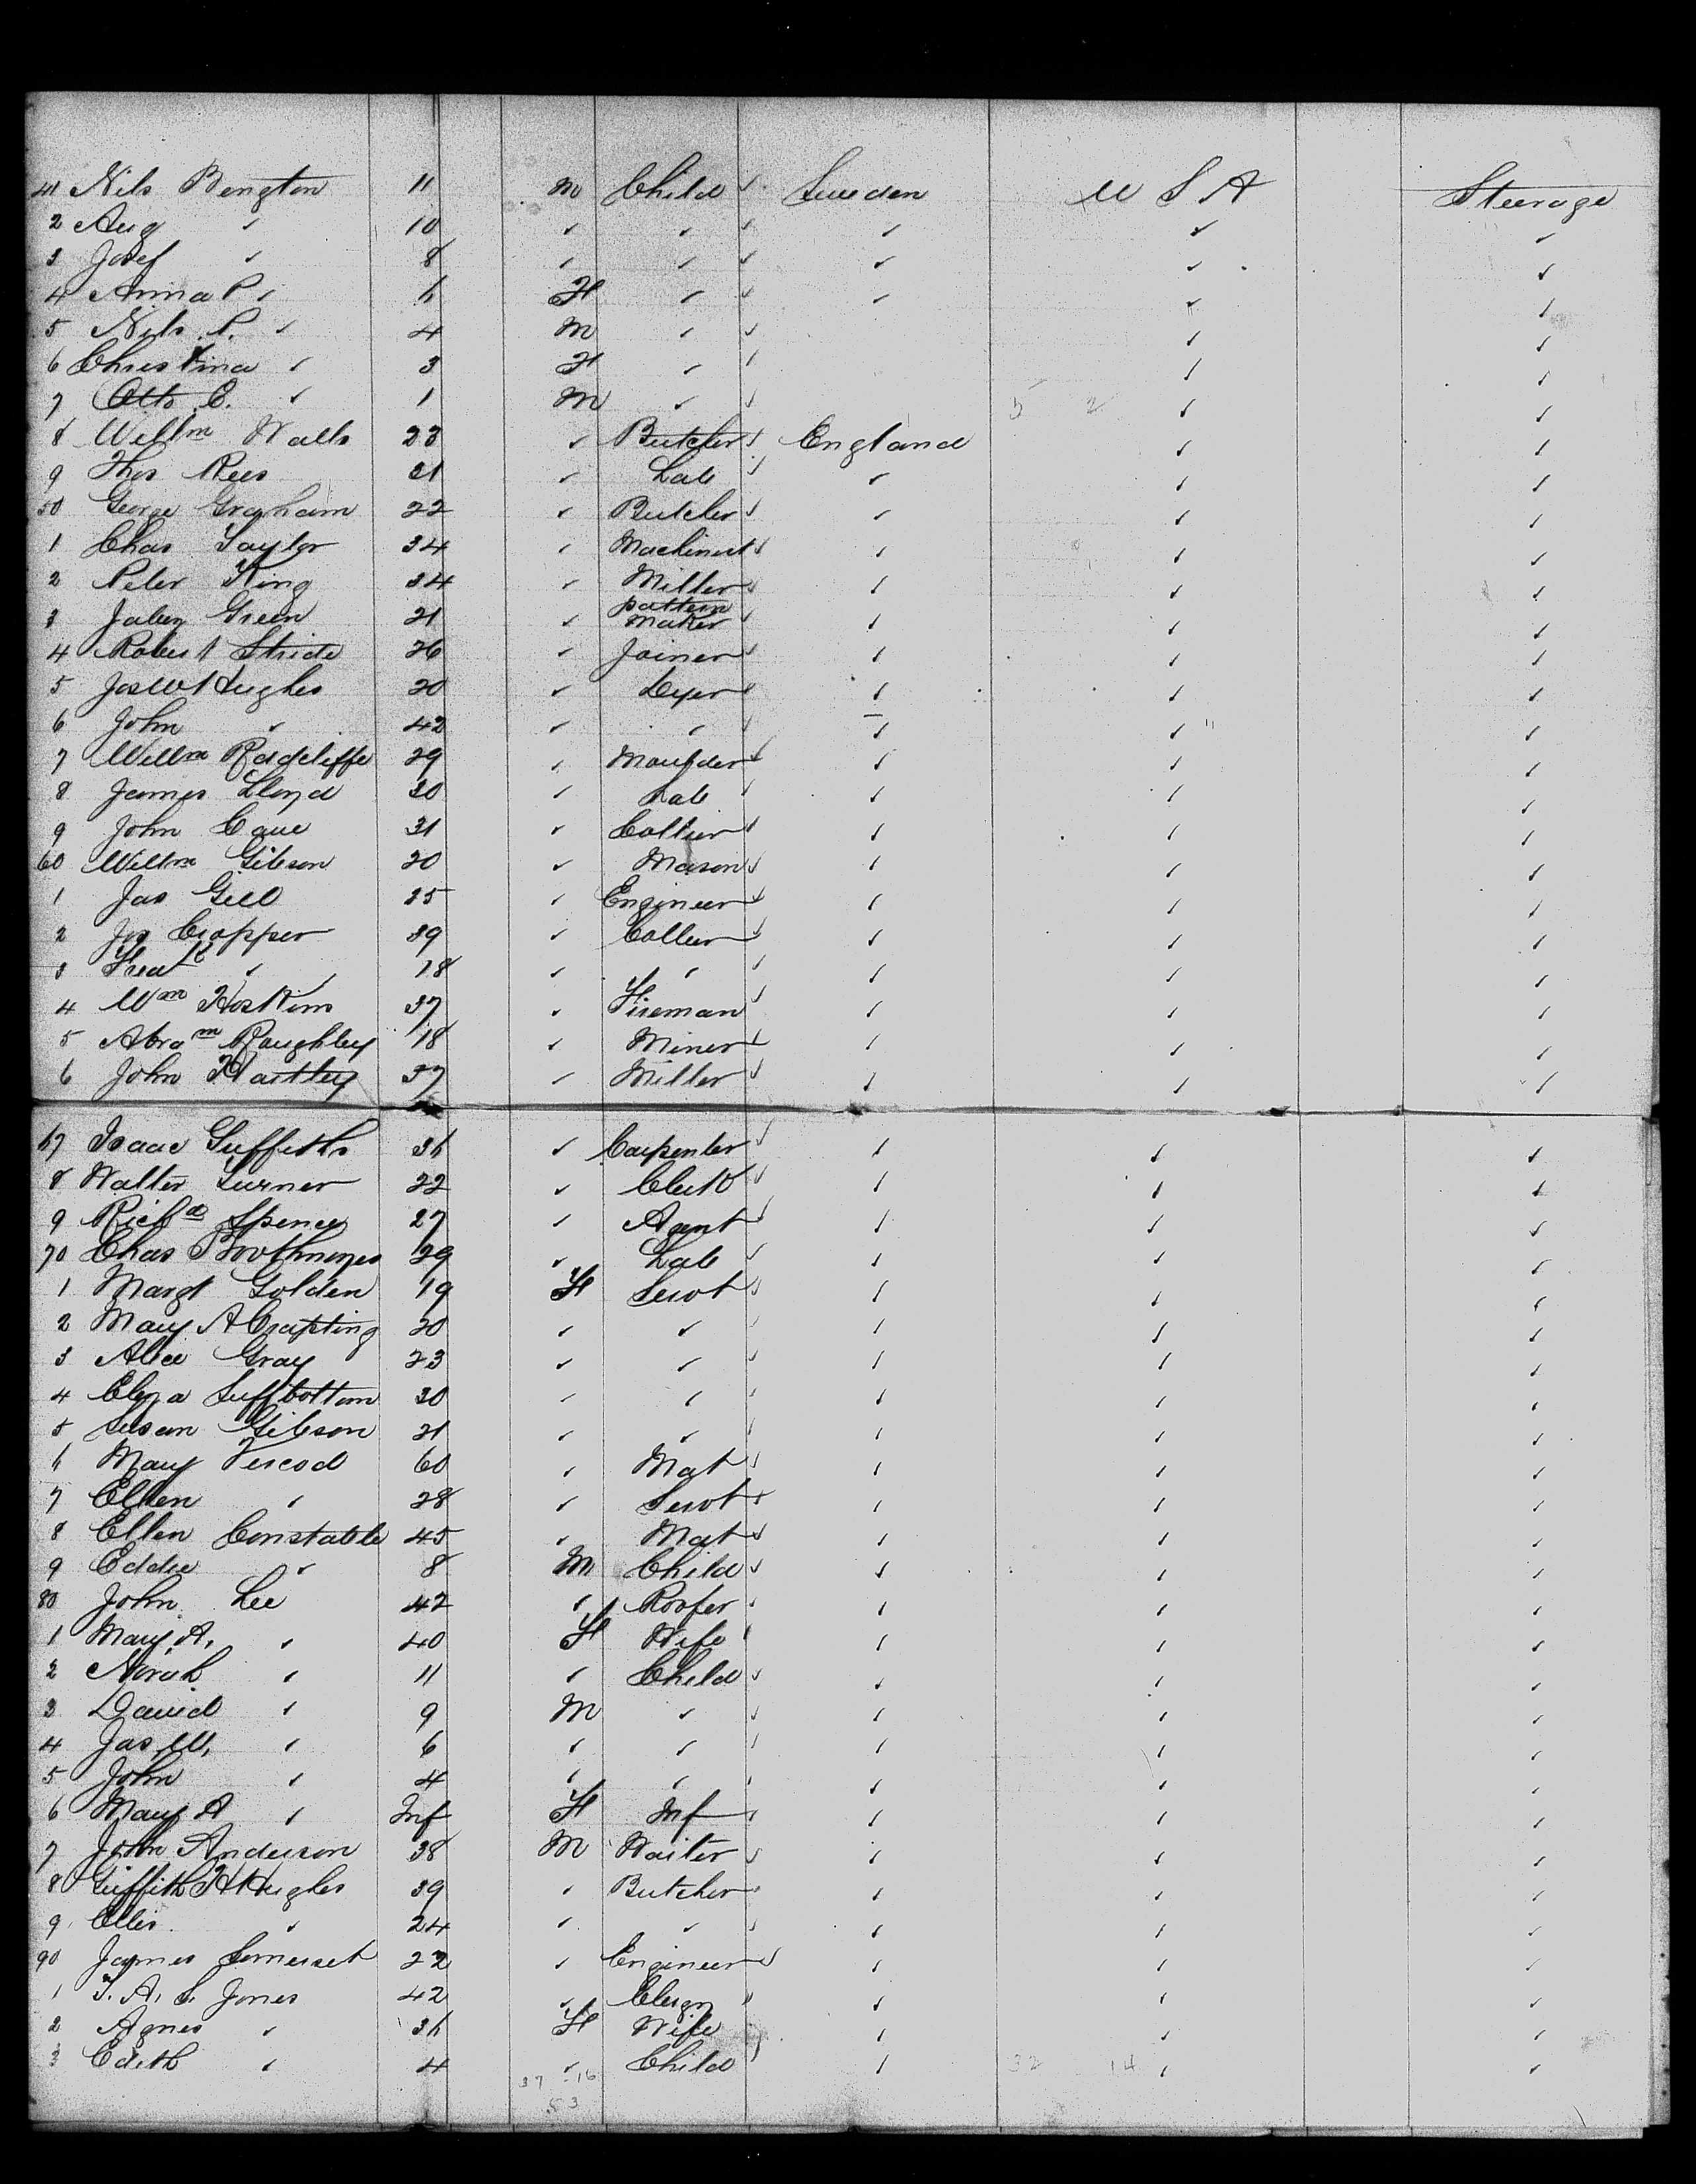 41 Nils Bengton 11 m Child ✓ Sweden U S A Steerage
2 Aug ✓ 10 ✓ ✓ ✓ ✓ ✓ ✓
3 Josef ✓ 8 ✓ ✓ ✓ ✓ ✓ ✓
4 Anna P ✓ 6 F ✓ ✓ ✓ ✓ ✓
5 Nils P. ✓ 4 M ✓ ✓ ✓ ✓
6 Christina ✓ 3 F ✓ ✓ ✓ ✓
7 Otto C. ✓ 1 M ✓ ✓ 5 2 ✓ ✓
8 Willm Walls 23 ✓ Butcher ✓ England ✓ ✓
9 Thos Rees 21 ✓ Lab ✓ ✓ ✓ ✓
50 George Graham 22 ✓ Butcher ✓ ✓ ✓ ✓
1 Chas Taylor 34 ✓ Machinist ✓ ✓ ✓ ✓
2 Peter King 34 ✓ Miller ✓ ✓ ✓ ✓
3 Jabez Green 21 ✓ pattern maker ✓ ✓ ✓ ✓
4 Robert Stride 26 ✓ Joiner ✓ ✓ ✓ ✓
5 Jas W Hughes 20 ✓ Dyer ✓ ✓ ✓ ✓
6 John ✓ 42 ✓ ✓ ✓ ✓ ✓ ✓
7 Willm Radcliffe 29 ✓ Moulder ✓ ✓ ✓ ✓
8 James Lloyd 30 ✓ Lab ✓ ✓ ✓ ✓
9 John Cave 31 ✓ Collier ✓ ✓ ✓ ✓
60 Willm Gibson 20 ✓ Mason ✓ ✓ ✓ ✓
1 Jas Gill 25 ✓ Engineer ✓ ✓ ✓ ✓
2 Jos Cropper 39 ✓ Collier ✓ ✓ ✓ ✓
3 Fredk ✓ 18 ✓ ✓ ✓ ✓ ✓ ✓
4 Wm Hoskins 37 ✓ Fireman ✓ ✓ ✓ ✓
5 Abram Roughley 18 ✓ Miner ✓ ✓ ✓ ✓
6 John Hartley 37 ✓ Miller ✓ ✓ ✓ ✓
67 Isaac Griffiths 36 ✓ Carpenter ✓ ✓ ✓ ✓
8 Walter Turner 22 ✓ Clerk ✓ ✓ ✓ ✓
9 Richd Spence 27 ✓ Agent ✓ ✓ ✓ ✓
70 Chas 29 ✓ Lab ✓ ✓ ✓ ✓
1 Margt Golden 19 F Servt ✓ ✓ ✓ ✓
2 Mary A 20 ✓ ✓ ✓ ✓ ✓ ✓
3 Alice Gray 23 ✓ ✓ ✓ ✓ ✓ ✓
4 Eliza 30 ✓ ✓ ✓ ✓ ✓ ✓
5 Susan Gibson 21 ✓ ✓ ✓ ✓ ✓ ✓
6 Mary 60 ✓ Mat ✓ ✓ ✓ ✓
7 Ellen ✓ 28 ✓ Servt ✓ ✓ ✓ ✓
8 Ellen Constable 45 ✓ Mat ✓ ✓ ✓ ✓
9 Eddie ✓ 8 M Child ✓ ✓ ✓ ✓
80 John Lee 42 ✓ Roofer ✓ ✓ ✓ ✓
1 Mary A. ✓ 40 F Wife ✓ ✓ ✓ ✓
2 Norah ✓ 11 ✓ Child ✓ ✓ ✓ ✓
3 David ✓ 9 M ✓ ✓ ✓ ✓ ✓
4 Jas W. ✓ 6 ✓ ✓ ✓ ✓ ✓ ✓
5 John ✓ 4 ✓ ✓ ✓ ✓ ✓ ✓
6 Mary A ✓ Inf F Inf ✓ ✓ ✓ ✓
7 John Anderson 38 M Waiter ✓ ✓ ✓ ✓
8 Griffith H Hughes 39 ✓ Butcher ✓ ✓ ✓ ✓
9 Ellis ✓ 24 ✓ ✓ ✓ ✓ ✓ ✓
90 James Somerset 22 ✓ Engineer ✓ ✓ ✓ ✓
1 T. A. S. Jones 42 ✓ Clergy ✓ ✓ ✓ ✓
2 Agnes ✓ 36 F Wife ✓ ✓ ✓ ✓
3 Edith ✓ 4 ✓ Child ✓ ✓ 32 14 ✓ ✓
37 16
53